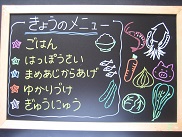 きょうのメニュー
ごはん
はっぽうさい
まめあじからあげ
ゆかりづけ
ぎゅうにゅう